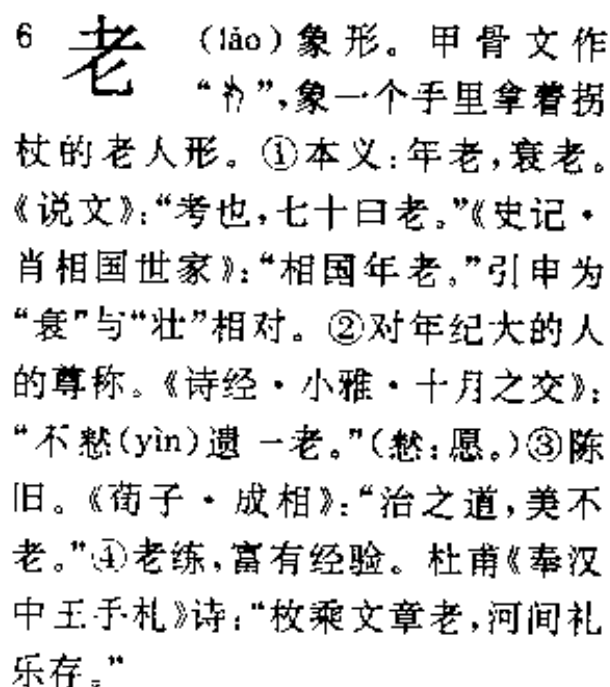 6 老 (lǎo)象形。甲骨文作
“”,象一个手里拿着拐
杖的老人形。①本义:年老,衰老。
《说文》:“考也,七十曰老。”《史记·
肖相国世家》:“相国年老。”引申为
“衰”与“壮”相对。②对年纪大的人
的尊称。《诗经·小雅·十月之交》:
“不慭(yìn)遗一老。”(慭:愿。)③陈
旧。《荀子·成相》:“治之道,美不
老。”④老练,富有经验。杜甫《奉汉
中王手札》诗:“枚乘文章老,河间礼
乐存。”